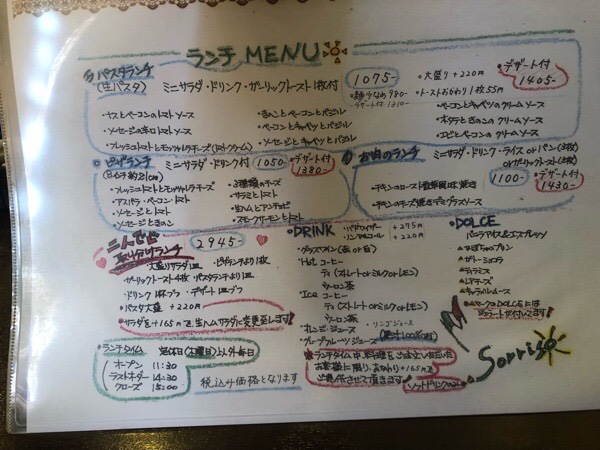 ランチ MENU
パスタランチ
(生パスタ)
ミニサラダ・ドリンク・ガーリックトースト1枚付
1075-
・麺少なめ 980-
デザート付 1310-
・大盛り +220円
・トーストおかわり 1枚55円
・デザート付
1405-
・ナスとベーコンのトマトソース
・ソーセージの辛口トマトソース
・フレッシュトマトとモッツァレラチーズ(トマトクリーム)
・きのことベーコンとバジル
・ベーコンとキャベツとバジル
・ソーセージとキャベツとバジル
・ベーコンとキャベツのクリームソース
・ホタテときのこのクリームソース
・エビとベーコンのクリームソース
・ピザランチ
ミニサラダ・ドリンク付
1050-
・デザート付
1380-
・フレッシュトマトとモッツァレラチーズ
・アスパラ・ベーコン・トマト
・ソーセージとトマト
・ソーセージときのこ
・3種類のチーズ
・サラミとトマト
・生ハムとアンチョビ
・スモークサーモンとトマト
お肉のランチ
ミニサラダ・ドリンク・ライス or パン(2枚)
or ガーリックトースト(2枚)
1100-
・デザート付
1430-
二人でどうぞ
取り分けランチ
2945-
・大盛りサラダ1皿 ・ピザランチより1枚
・ガーリックトースト4枚 ・パスタランチより1皿
・ドリンク 1杯づつ ・デザート 1皿づつ
・パスタ大盛 +220円
・サラダを+165円で生ハムサラダに変更出来ます!
・DRINK
・グラスワイン (赤 or 白)
・Hot コーヒー
ティ (ストレート or ミルク or レモン)
・Ice コーヒー
ティ (ストレート or ミルク or レモン)
・オレンジジュース
・リンゴジュース
・グレープフルーツジュース
(果汁100%です)
+275円
+220円
・DOLCE
・バニラアイス&エスプレッソ
・ティラミス
・ランチタイム中、お料理をご注文いただいた
お客様に限り、おかわり+165円で
ご提供させて頂きます!
(ソフトドリンクのみ)
・ランチタイム
定休日(木曜日)以外毎日
オープン 11:30
ラストオーダー 14:30
クローズ 15:00
税込み価格となります
Sorriso